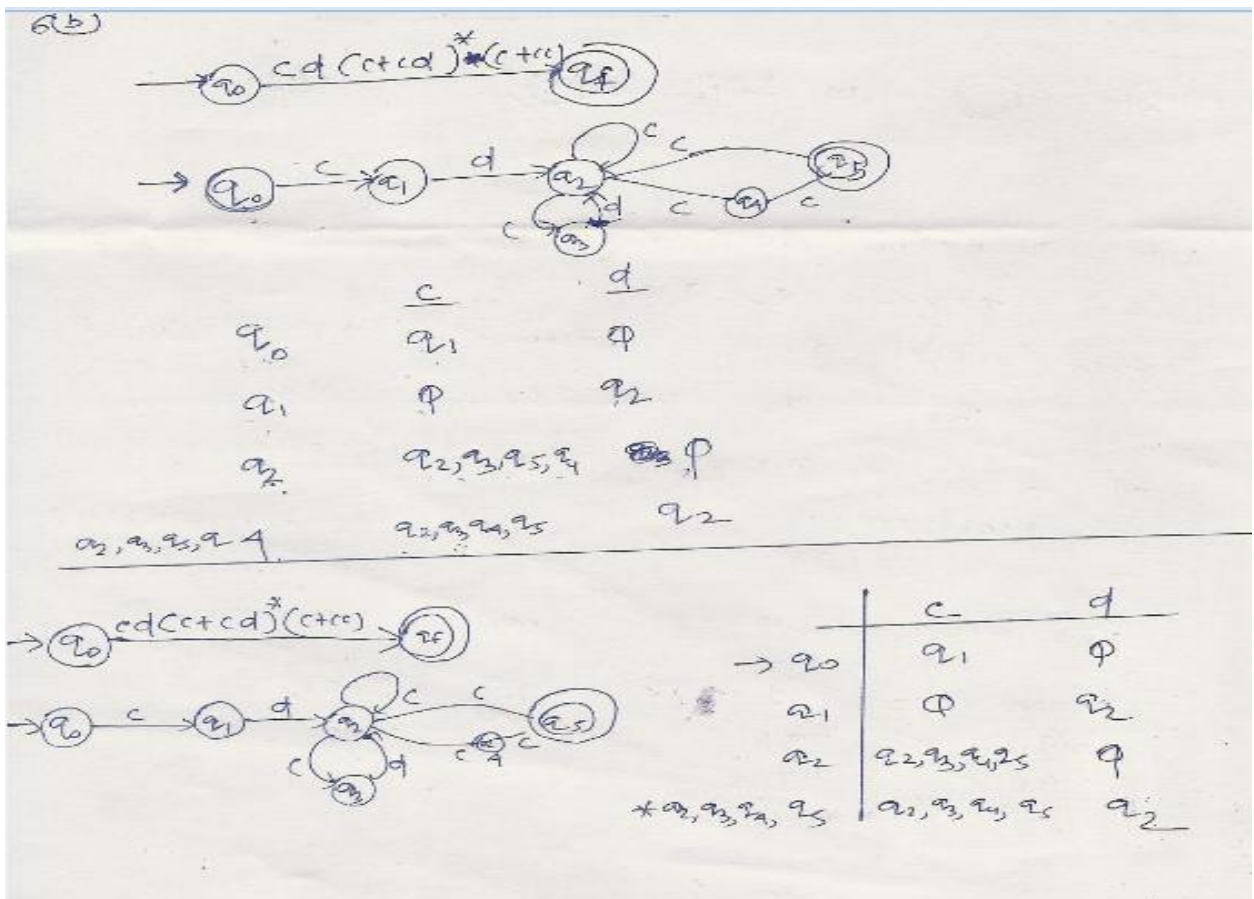 6(b)
q0 cd(c+cd)*(c+cc) qf
q0 c q1 d q2 c c q5
c d c q4 c
q3
c d
q0 q1 φ
q1 φ q2
q2 q2,q3,q5,q4 φ
q2,q3,q5,q4 q2,q3,q4,q5 q2
q0 cd(c+cd)*(c+cc) qf
q0 c q1 d q2 c c q5
c d c q4 c
q3
c d
→ q0 q1 φ
q1 φ q2
q2 q2,q3,q4,q5 φ
* q2,q3,q4,q5 q2,q3,q4,q5 q2